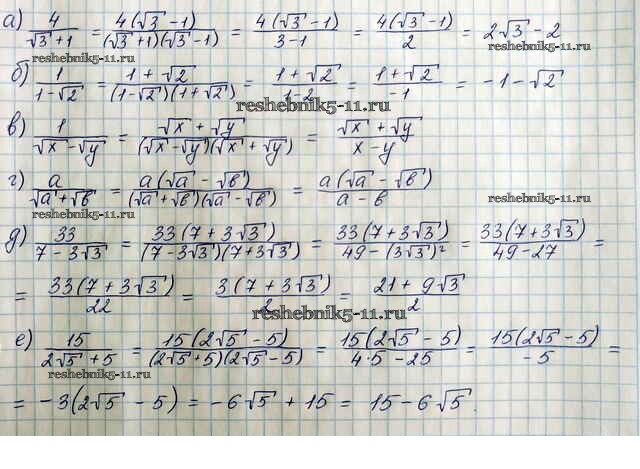 а) 4/(√3+1) = 4(√3-1)/((√3+1)(√3-1)) = 4(√3-1)/(3-1) = 4(√3-1)/2 = 2√3-2
reshebnik5-11.ru reshebnik5-11.ru
б) 1/(1-√2) = (1+√2)/((1-√2)(1+√2)) = (1+√2)/(1-2) = (1+√2)/(-1) = -1-√2
reshebnik5-11.ru
в) 1/(√x-√y) = (√x+√y)/((√x-√y)(√x+√y)) = (√x+√y)/(x-y)
г) a/(√a+√в) = a(√a-√в)/((√a+√в)(√a-√в)) = a(√a-√в)/(a-в)
reshebnik5-11.ru reshebnik5-11.ru
д) 33/(7-3√3) = 33(7+3√3)/((7-3√3)(7+3√3)) = 33(7+3√3)/(49-(3√3)²) = 33(7+3√3)/(49-27) =
= 33(7+3√3)/22 = 3(7+3√3)/2 = (21+9√3)/2
reshebnik5-11.ru
е) 15/(2√5+5) = 15(2√5-5)/((2√5+5)(2√5-5)) = 15(2√5-5)/(4·5-25) = 15(2√5-5)/(-5) =
reshebnik5-11.ru reshebnik5-11.ru
= -3(2√5-5) = -6√5+15 = 15-6√5.